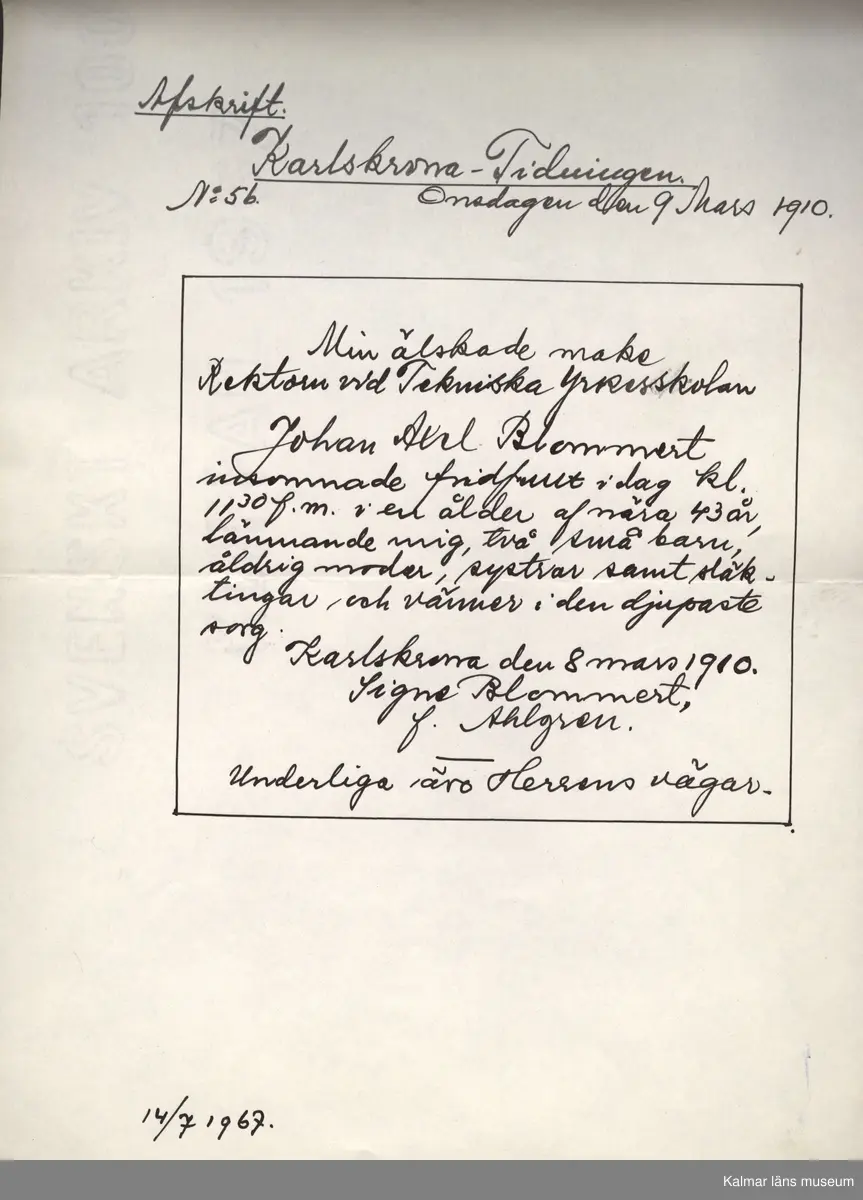 Afskrift.
Karlskrona-Tidningen.
No: 56. Onsdagen den 9 Mars 1910.
Min älskade make
Rektorn vid Tekniska Yrkesskolan
Johan Axel Blommert
insomnade fridfullt i dag kl.
11³⁰ f.m. i en ålder af nära 43 år,
lämnande mig, två små barn,
åldrig moder, systrar samt släk-
tingar, och vänner i den djupaste
sorg.
Karlskrona den 8 mars 1910.
Signe Blommert,
f. Ahlgren.
Underliga äro Herrens vägar.
14/7 1967.
Kalmar läns museum